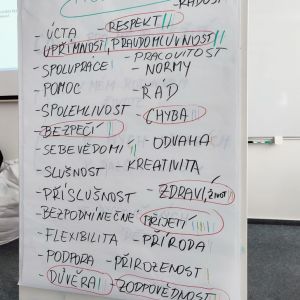 RADOST
- ÚCTA - RESPEKT
- UPŘÍMNOST, PRAVDOMLUVNOST
- PRACOVITOST
- SPOLUPRÁCE - NORMY
- POMOC - ŘÁD
- SPOLEHLIVOST - CHYBA
- BEZPEČÍ - ODVAHA
- SEBEVĚDOMÍ
- SLUŠNOST - KREATIVITA
- PŘÍSLUŠNOST - ZDRAVÍ, ŽIVOT
- BEZPODMÍNEČNÉ PŘIJETÍ
- FLEXIBILITA - PŘÍRODA
- PODPORA - PŘIROZENOST
- DŮVĚRA! - ZODPOVĚDNOST